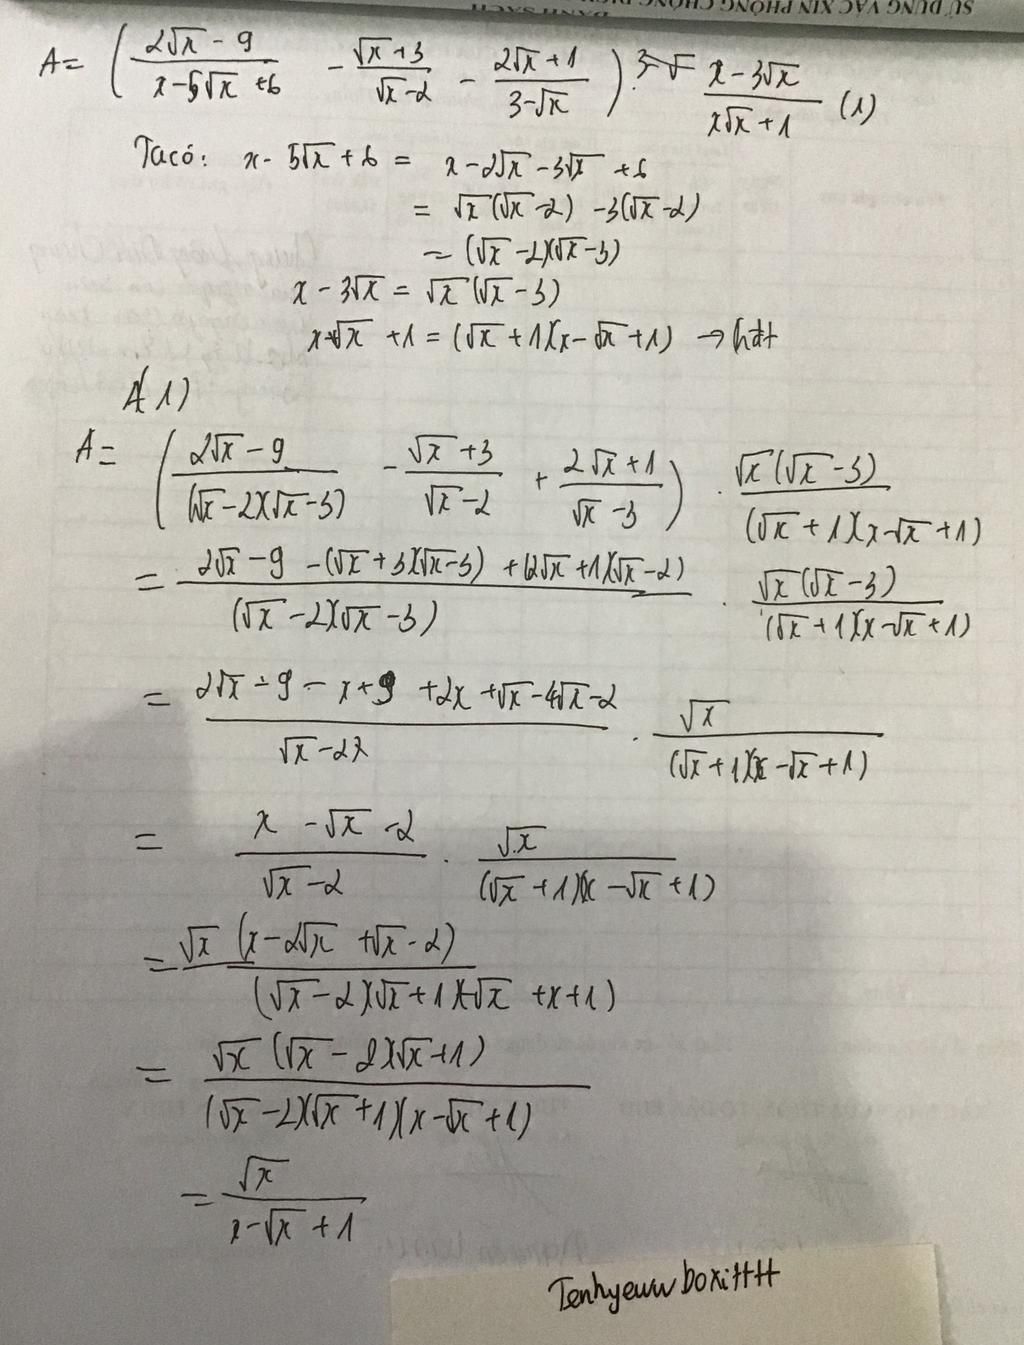 SỬ DỤNG VẮC XIN PHÒNG CHỐNG DỊCH
DANH SÁCH
A = ( (2√x - 9)/(x - 5√x + 6) - (√x + 3)/(√x - 2) - (2√x + 1)/(3 - √x) ) . (x - 3√x)/(x√x + 1) (1)
Ta có: x - 5√x + 6 = x - 2√x - 3√x + 6
= √x(√x - 2) - 3(√x - 2)
= (√x - 2)(√x - 3)
x - 3√x = √x(√x - 3)
x√x + 1 = (√x + 1)(x - √x + 1) → hđt
(1)
A = ( (2√x - 9)/((√x - 2)(√x - 3)) - (√x + 3)/(√x - 2) + (2√x + 1)/(√x - 3) ) . √x(√x - 3)/((√x + 1)(x - √x + 1))
= (2√x - 9 - (√x + 3)(√x - 3) + (2√x + 1)(√x - 2))/((√x - 2)(√x - 3)) . √x(√x - 3)/((√x + 1)(x - √x + 1))
= (2√x - 9 - x + 9 + 2x + √x - 4√x - 2)/(√x - 2) . √x/((√x + 1)(x - √x + 1))
= (x - √x - 2)/(√x - 2) . √x/((√x + 1)(x - √x + 1))
= √x(x - 2√x + √x - 2)/((√x - 2)(√x + 1)(-√x + x + 1))
= √x(√x - 2)(√x + 1)/((√x - 2)(√x + 1)(x - √x + 1))
= √x/(x - √x + 1)
Tenhyeuw boxittH